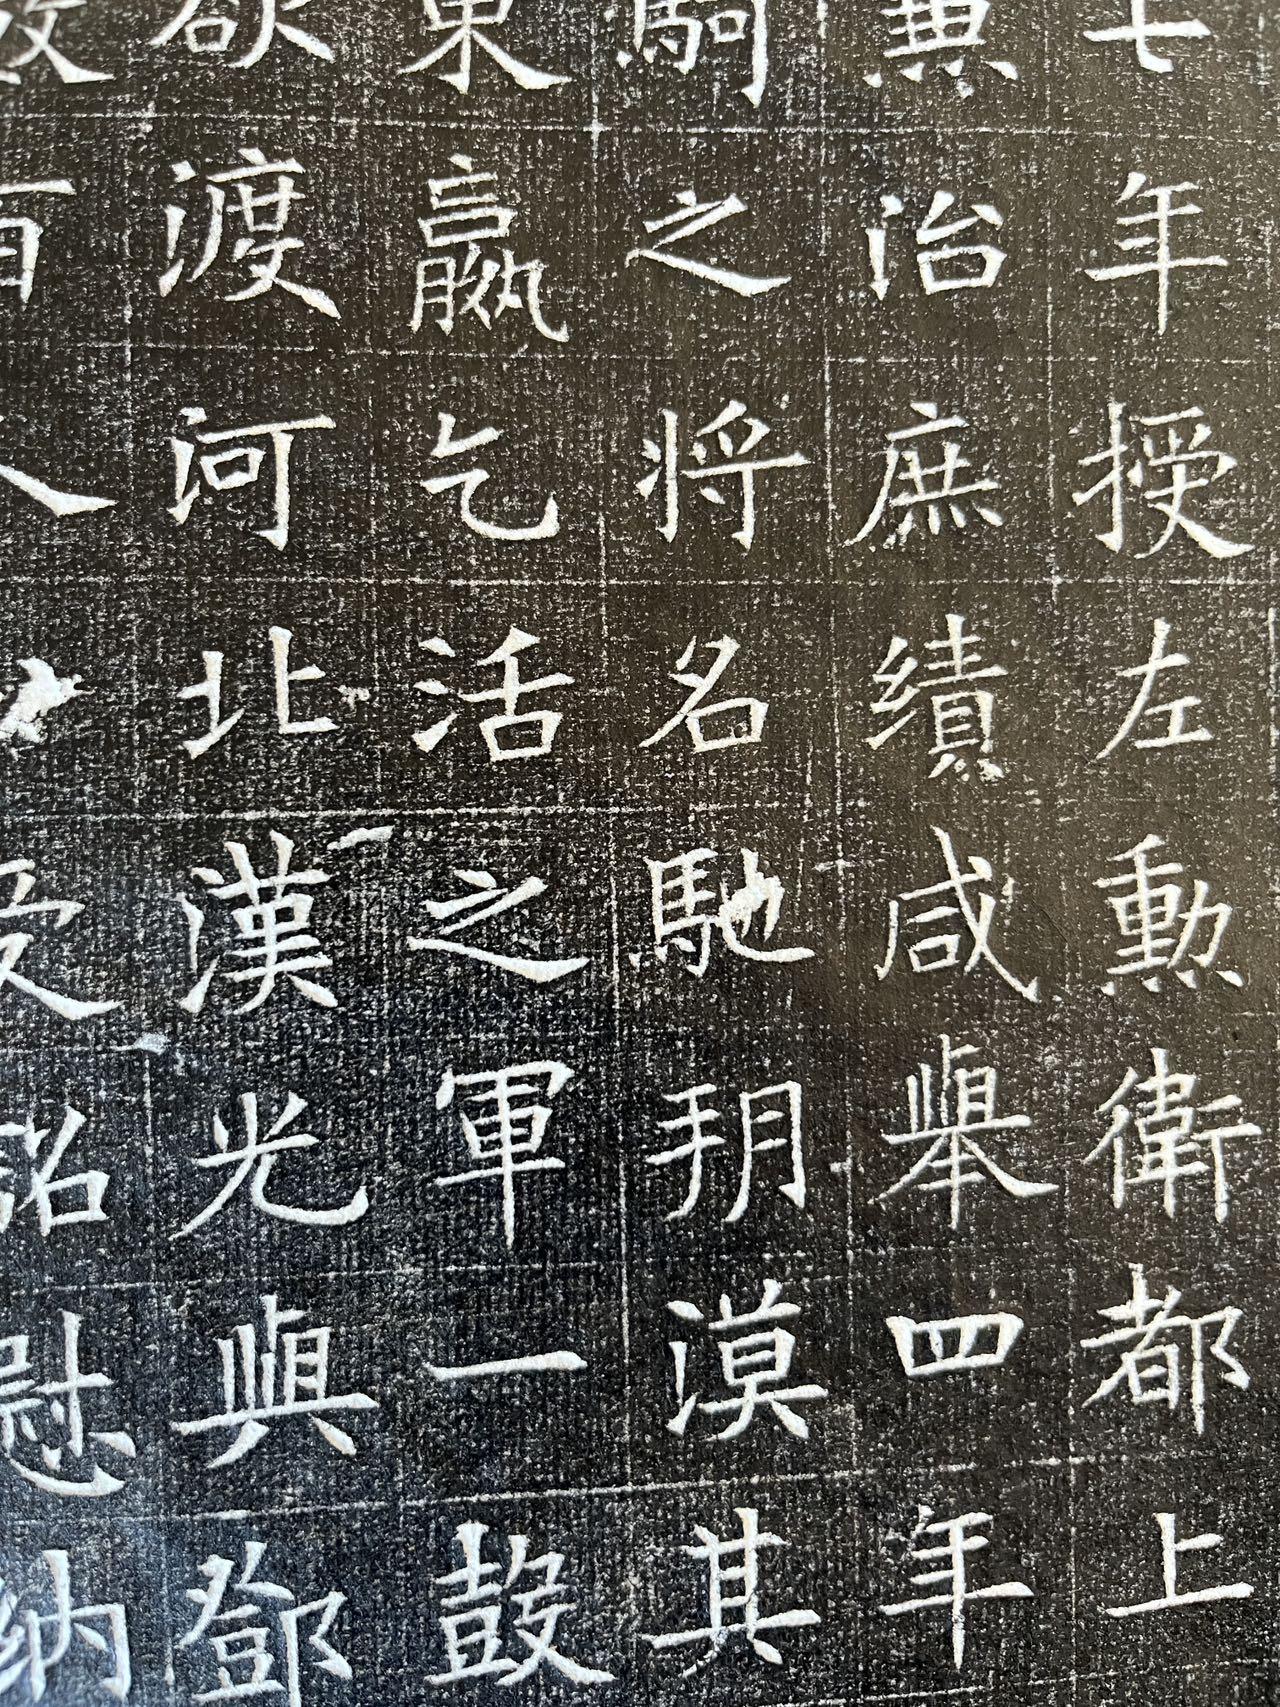 七年授左勲衛都上
兼治庶績咸舉四年
之將名馳朔漠其
東嬴乞活之軍一鼓
欲渡河北漢光與鄧
百受詔慰納